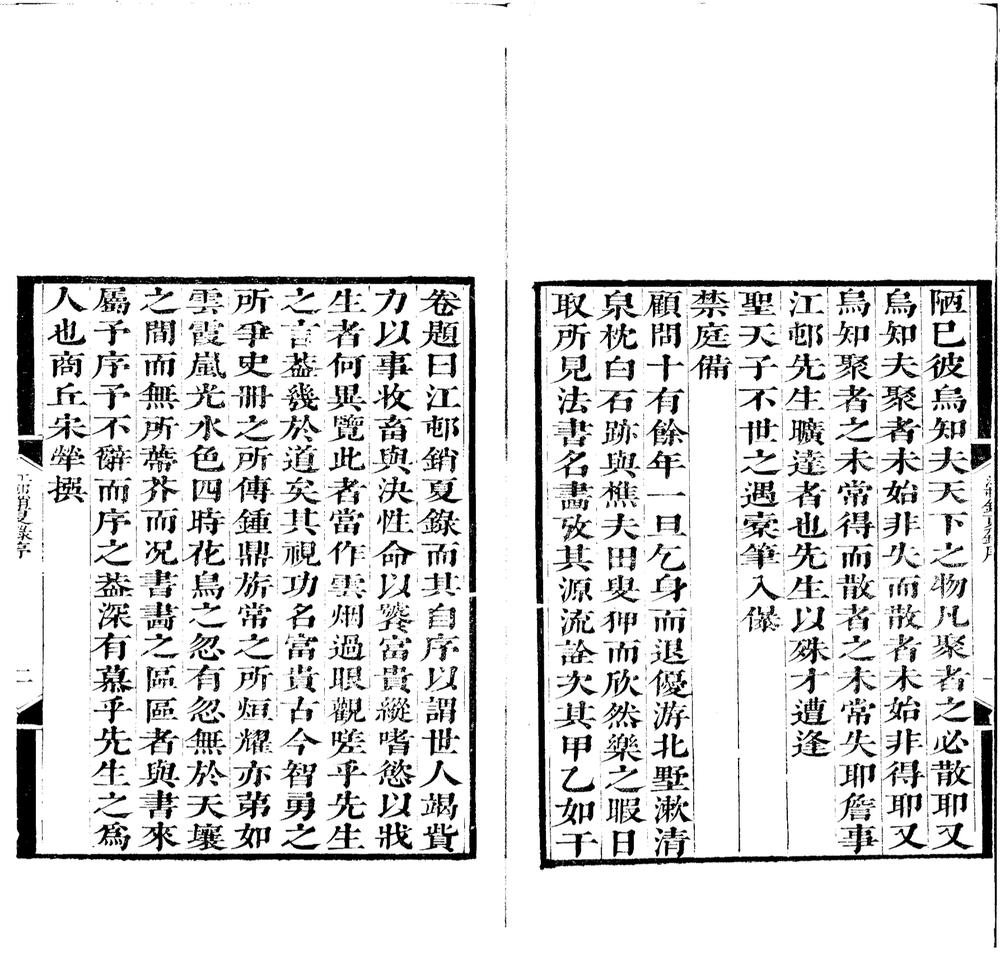 陋巳彼烏知夫天下之物凡聚者之必散耶又
烏知夫聚者未始非失而散者未始非得耶又
烏知聚者之未常得而散者之未常失耶詹事
江邨先生曠達者也先生以殊才遭逢
聖天子不世之遇橐筆入
禁庭備
顧問十有餘年一旦乞身而退優游北墅漱清
泉枕白石跡與樵夫田叟狎而欣然樂之暇日
取所見法書名畵攷其源流詮次其甲乙如干
江邨銷夏錄序
一
卷題曰江邨銷夏錄而其自序以謂世人竭貲
力以事收畜與決性命以饕富貴縱嗜慾以戕
生者何異覽此者當作雲烟過眼觀嗟乎先生
之言葢幾於道矣其視功名富貴古今智勇之
所爭史冊之所傳鍾鼎旂常之所烜耀亦苐如
雲霞嵐光水色四時花鳥之忽有忽無於天壤
之間而無所蔕芥而况書畵之區區者與書來
屬予序予不辭而序之葢深有慕乎先生之爲
人也商丘宋犖撰
江邨銷夏錄序
二